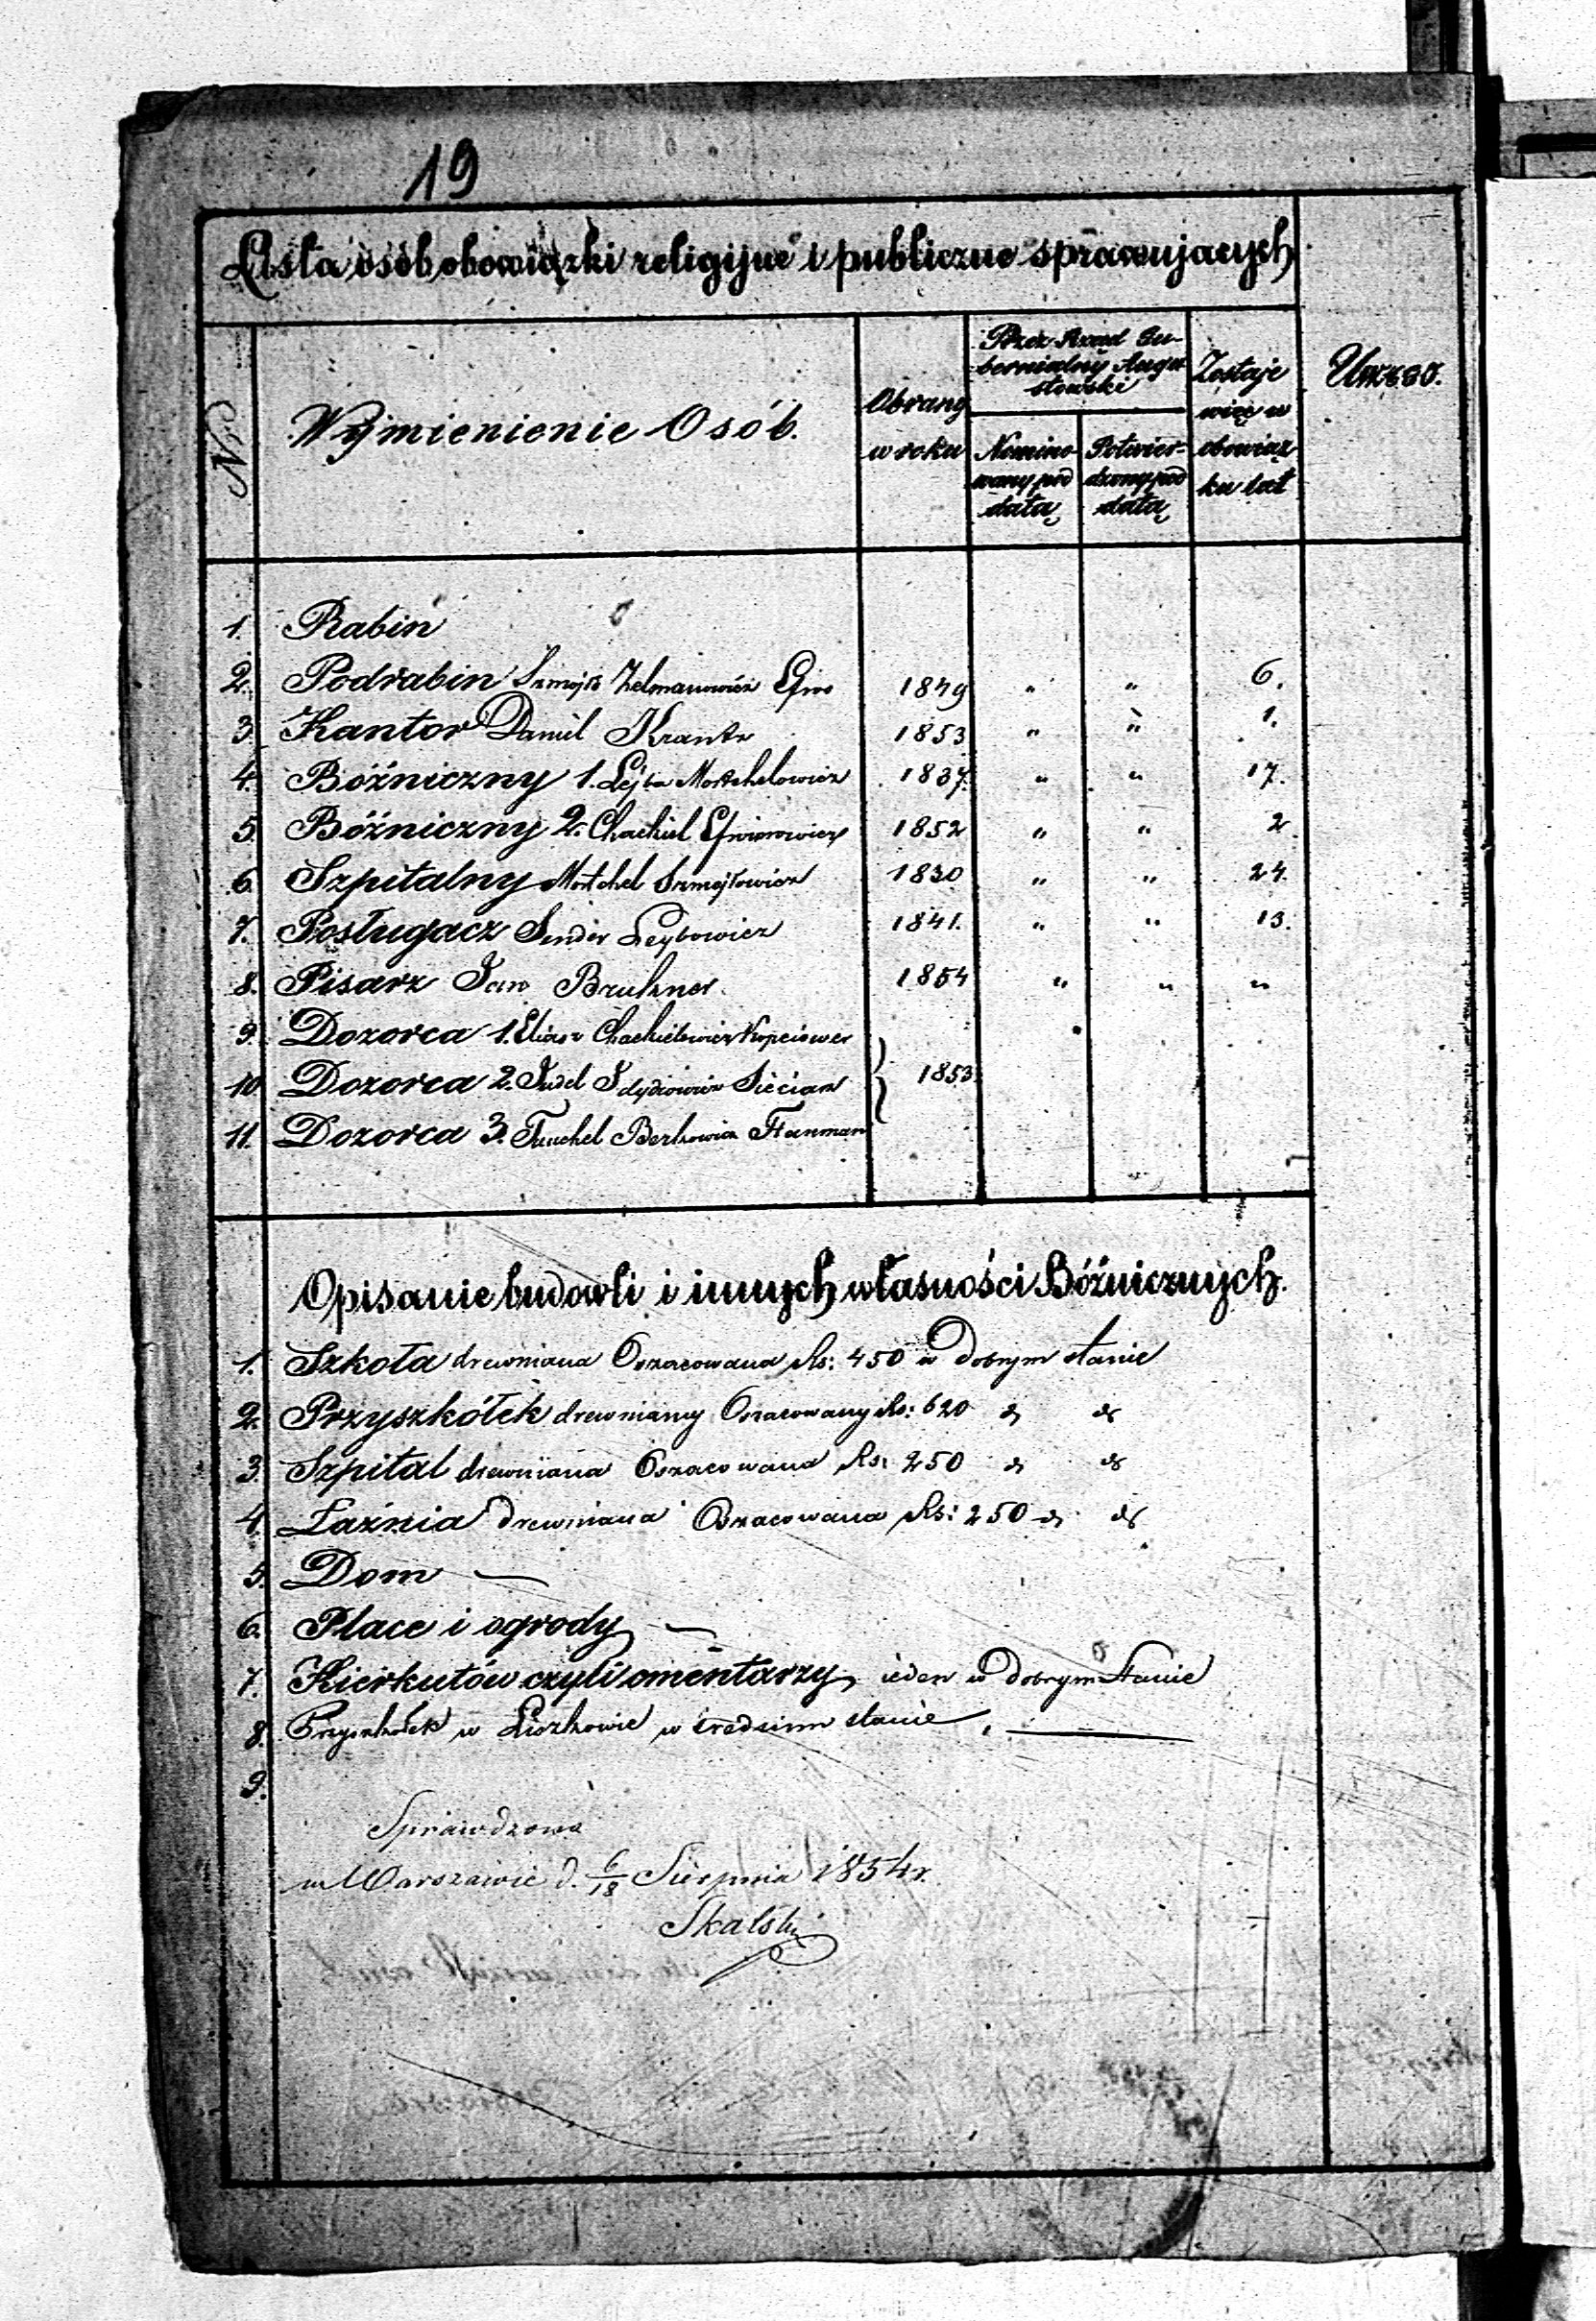 19
Lista osób obowiązki religijne i publiczne sprawujących
Nro
Wymienienie Osób.
Obrany w roku
Przez Rząd Gubernialny Augustowski
Nominowany pod datą
Potwierdzony pod datą
Zostaje więc w obowiązku lat
Uwago.
1. Rabin
2. Podrabin Szmojło Zelmanowicz 1849 " " 6.
3. Kantor Daniel Krantz 1853 " " 1.
4. Bóźniczny 1. Lejba Mortchelowicz 1837. " " 17.
5. Bóźniczny 2. Chackiel 1852 " " 2
6. Szpitalny Mortchel Szmojłowicz 1830 " " 24.
7. Posługacz Sender Leybowicz 1841. " " 13.
8. Pisarz Jan Bruhner 1854 " " "
9. Dozorca 1. Eliasz Chackielowicz Kopciower
10. Dozorca 2. Judel 1853
11. Dozorca 3. Berkowicz
Opisanie budowli i innych własności Bóźnicznych.
1. Szkoła drewniana Oszacowana Rs: 450 w Dobrym stanie
2. Przyszkółek drewniany Oszacowany Rs: 620 d d
3. Szpital drewniana Oszacowana Rs: 250 d d
4. Łaźnia drewniana Oszacowana Rs: 250 d d
5. Dom —
6. Place i ogrody —
7. Kierkutów czyli omentarzy ieden w dobrym Stanie
8. Przyszkołek w Liszkowie w srednim stanie. —
9.
Sprawdzono
w Warszawie d. 6/18 Sierpnia 1854 r.
Skalski